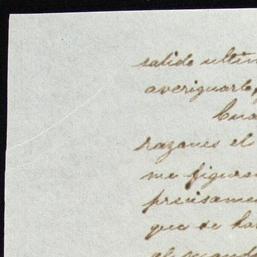 salido ultim
averiguarlo,
Cua
razones el
me figuro
precisame
que de ha